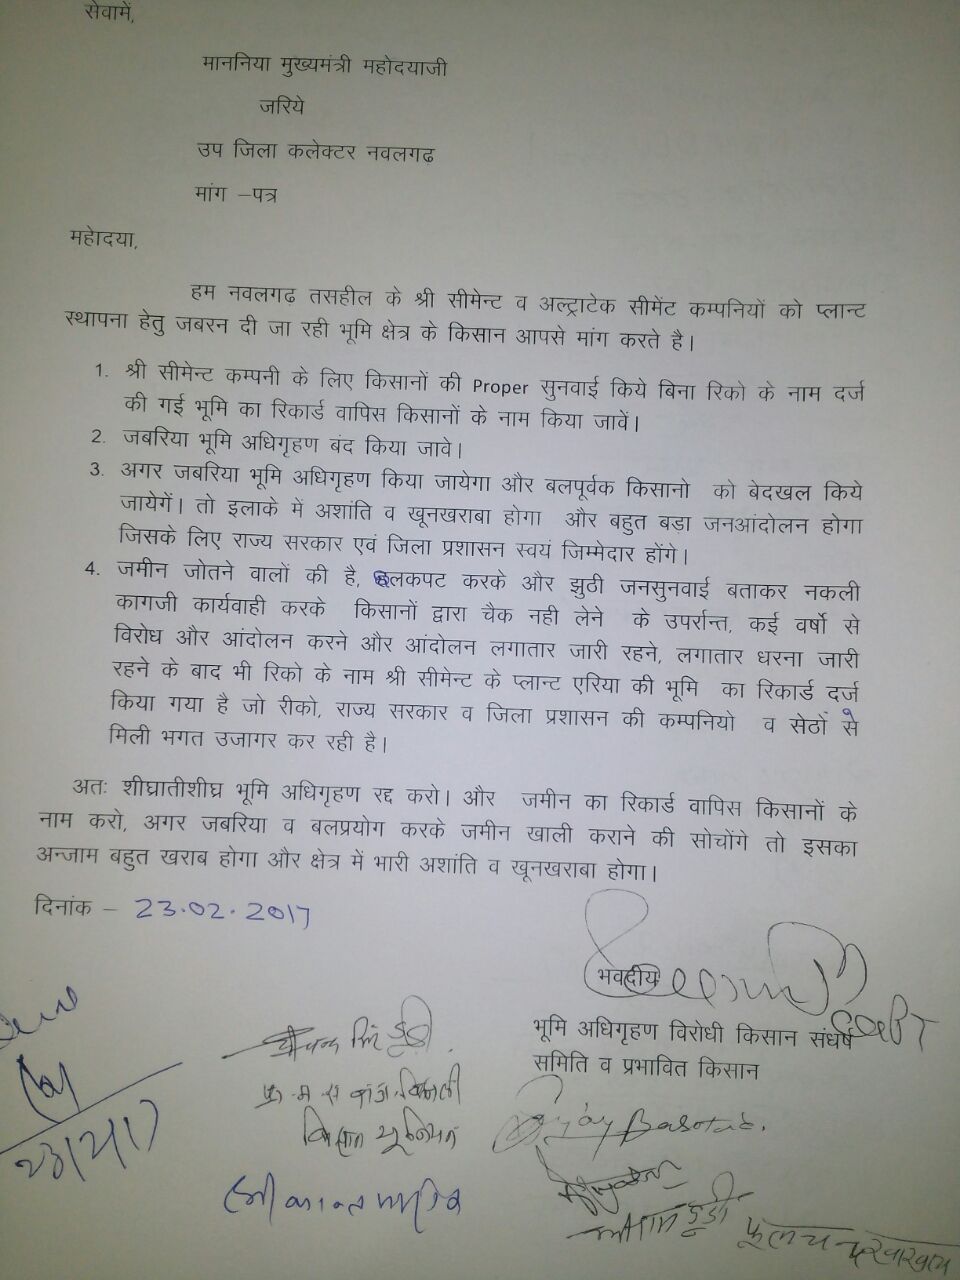 सेवामें,
माननिया मुख्यमंत्री महोदयाजी
जरिये
उप जिला कलेक्टर नवलगढ
मांग –पत्र
महोदया,
हम नवलगढ तसहील के श्री सीमेन्ट व अल्ट्राटेक सीमेंट कम्पनियों को प्लान्ट
स्थापना हेतु जबरन दी जा रही भूमि क्षेत्र के किसान आपसे मांग करते है।
1. श्री सीमेन्ट कम्पनी के लिए किसानों की Proper सुनवाई किये बिना रिको के नाम दर्ज
की गई भूमि का रिकार्ड वापिस किसानों के नाम किया जावें।
2. जबरिया भूमि अधिगृहण बंद किया जावे।
3. अगर जबरिया भूमि अधिगृहण किया जायेगा और बलपूर्वक किसानो को बेदखल किये
जायेगें। तो इलाके में अशांति व खूनखराबा होगा और बहुत बड़ा जनआंदोलन होगा
जिसके लिए राज्य सरकार एवं जिला प्रशासन स्वयं जिम्मेदार होंगे।
4. जमीन जोतने वालों की है, छलकपट करके और झुठी जनसुनवाई बताकर नकली
कागजी कार्यवाही करके किसानों द्वारा चैक नही लेने के उपर्रान्त, कई वर्षो से
विरोध और आंदोलन करने और आंदोलन लगातार जारी रहने, लगातार धरना जारी
रहने के बाद भी रिको के नाम श्री सीमेन्ट के प्लान्ट एरिया की भूमि का रिकार्ड दर्ज
किया गया है जो रीको, राज्य सरकार व जिला प्रशासन की कम्पनियो व सेठों से
मिली भगत उजागर कर रही है।
अतः शीघ्रातीशीघ्र भूमि अधिगृहण रद्द करो। और जमीन का रिकार्ड वापिस किसानों के
नाम करो, अगर जबरिया व बलप्रयोग करके जमीन खाली कराने की सोचोंगे तो इसका
अन्जाम बहुत खराब होगा और क्षेत्र में भारी अशांति व खूनखराबा होगा।
दिनांक – 23.02.2017
भवदीय
भूमि अधिगृहण विरोधी किसान संघर्ष
समिति व प्रभावित किसान
किसान यूनियन
श्रीकान्त
फूलचन्द